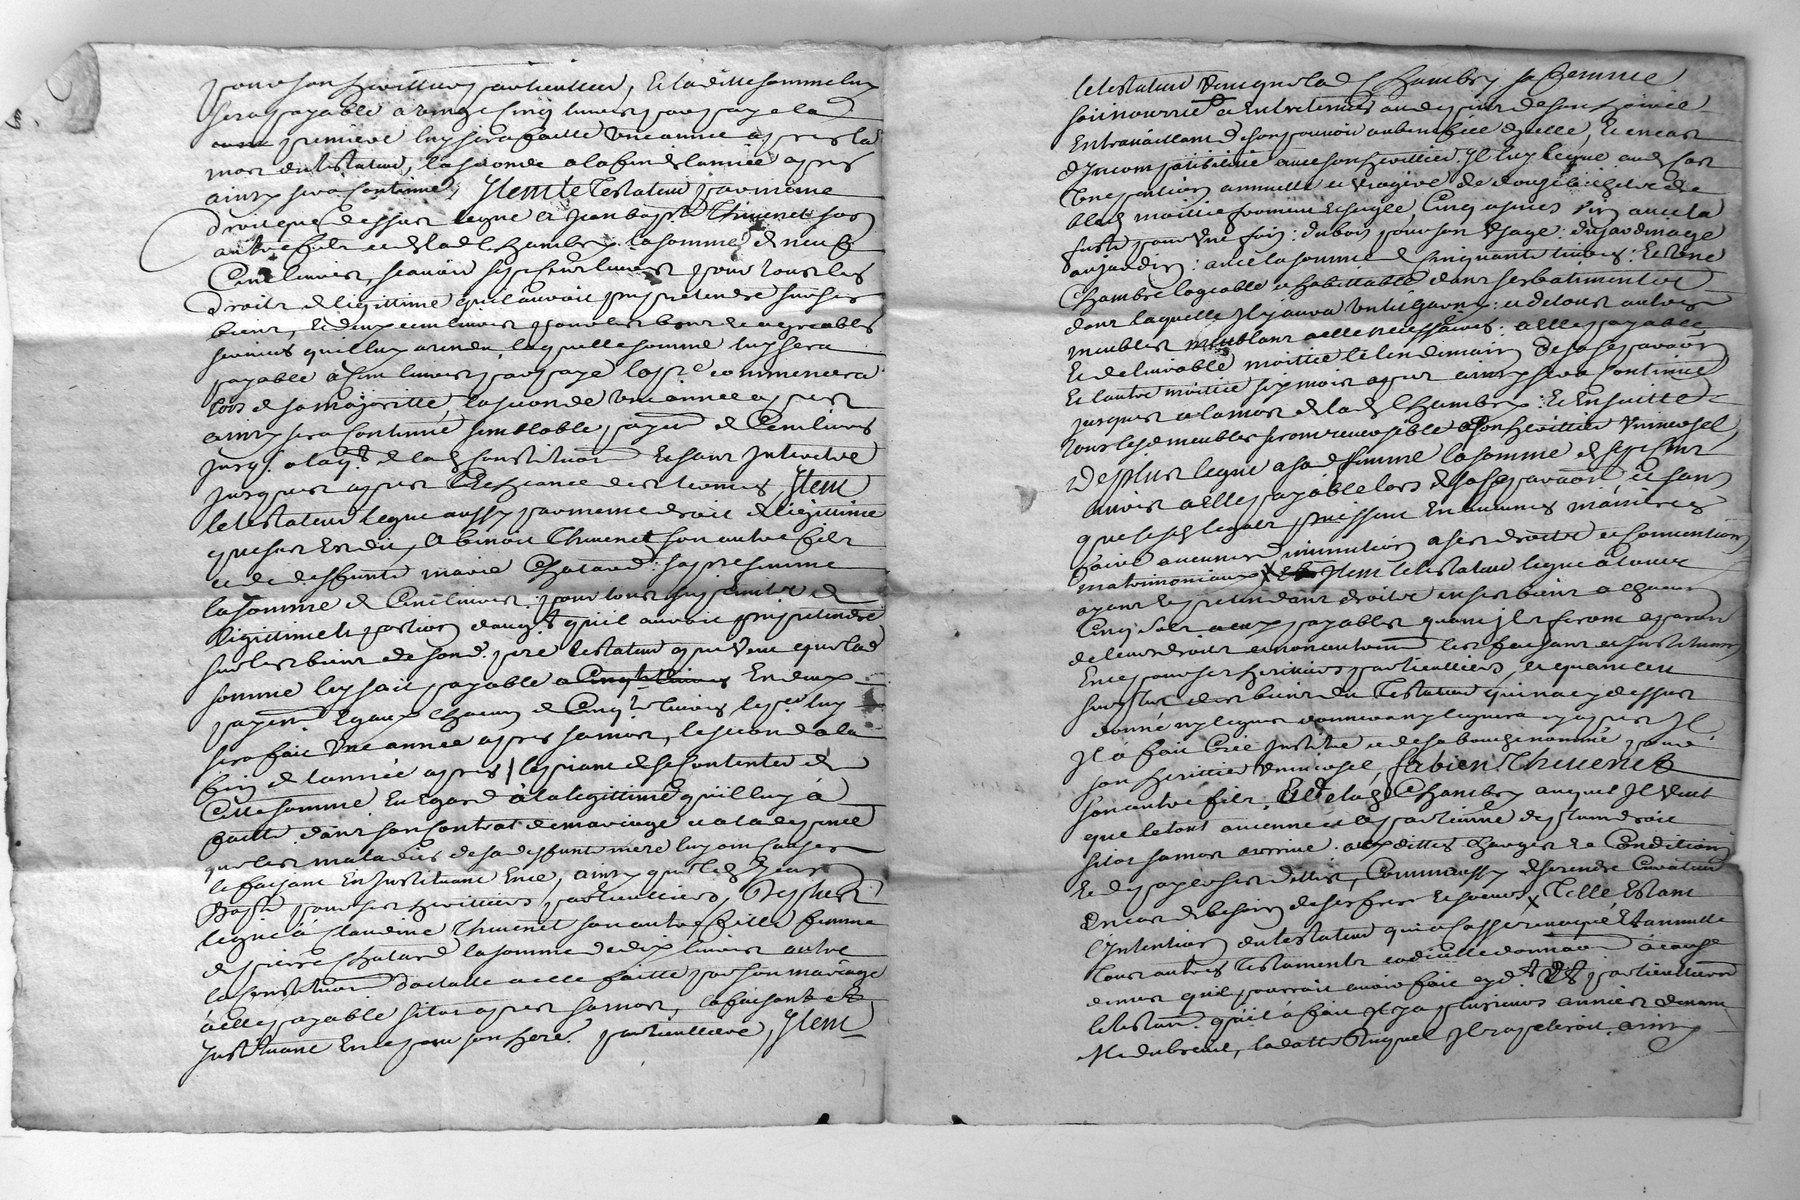 pour son herittier particullier, Et laditte somme luy
sera payable a vingt cinq livres par paye la
premiere luy sera faitte une année apres la
mort du testateur, la seconde a la fin de lannée apres
ainsy sera continué, Item le Testateur par mesme
droit que dessus legue a Jean bapte Thivenet son
autre fils et de lad Chambry la somme de neuf
Cent livres, scavoir sept cent livres pour tous les
droits de legittime quil auroit pu pretendre sur ses
biens, et deux cent livres pour les bons et agreables
services quil luy a rendu, laquelle somme luy sera
payable a cent livres par paye la pre commencera
lors de sa majoritté, la seconde une année apres
ainsy sera continué semblable payem de Cent livres
jusq. a lad constitution Et sans Interest
jusques apres lecheance des termes, Item
le testateur legue aussy par meme droit de legittime
que sus est dit, a benoit Thivenet son autre fils
et de deffunte marie Chatard sa pre femme
la somme de Cent livres pour tous
legittime et portion daugt quil auroit pu pretendre
sur les biens de sond. pere testateur que lad
somme luy soit payable En deux
payem Egaux chacun de Cinqte livres le pr luy
sera fait une année apres sa mort, le second a la
fin de lannée apres, le priant de se contenter de
Cette somme En Egard à la legittime quil luy à
faitte dans son Contrat de mariage et a la depense
que les maladies de sa deffunte mere luy ont causés
le faisant En Instituant Ence, ainsy que led Jean
Bapte pour ses herittiers particulliers, De plus
legue à Claudine Thivenet son autre fille femme
de pierre Chatard la somme de dix livres outre
la constitution dotalle a elle faitte par son mariage
à elle payable sitot apres sa mort, la faisant et
Instituant En ce pour son here. particulliere, Item
le testateur veut que lad Chambry sa femme
soit nourrie et Entretenue au depens de son hoirie
En travaillant de son pouvoir au benefice dicelle, et en cas
dIncompatibilité avec son herittier Il luy legue aud cas
Une pention annuelle et viagere de bled
moittié froment et seigle, Cinq asnées vin avec la
futte pour une fois: du bois pour son Usage: du jardinage
au jardin: avec la somme de Cinquante livres: Et une
Chambre logeable et habittable dans ses batiments
dans laquelle Il y aura un lit garny: et de tous autres
meubles meublans a elle necessaires: a elle payable
Et delivrable moittié le lendemain de sa separaon
Et lautre moittié six mois apres ainsy sera Continué
jusques a la mort de lad Chambry: Et Ensuitte
tous lesd meubles seront reversible a son herittier Universel,
De plus legue a sad femme la somme de sept cent
livres a elle payable lors de sa separaon et sans
que lesd legats puissent En aucunes manieres
faire aucunes diminution a ses droits et conventions
matrimoniaux X Item le testateur legue à tous
ayans et pretendans droits en ses biens a chacun
Cinq sols a eux payables quand ils feront aparoir
de leurs droits et non autrem. les faisant et Instituant
En ce pour ses heritiers particulliers, et quand au
surplus des biens du Testateur qui na cy dessus
donné ny legué donnera ny leguera cy apres Il
Il a fait Créé Institué et de sa bouche nommé pour
son herittier Universel, fabien Thivenet
son autre fils et de lad Chambry auquel Il veut
que le tout aviene et de plein droit
sitot sa mort arrivé. aux dittes charges et Conditions
Et de payer ses dettes, Comme aussy de servir de Curateur
En cas de besoin de ses freres Et soeurs X Telle Estant
lIntention du testateur qui a Cassé revoqué Et annullé
tous autres testaments codicilles donnaon à cause
de mort quil pourroit avoir fait cy dt Et particullierem
le testam. quil à fait Il y a plusieurs années devant
Me dubreuil, la datte duquel Il rapelleroit, ainsy